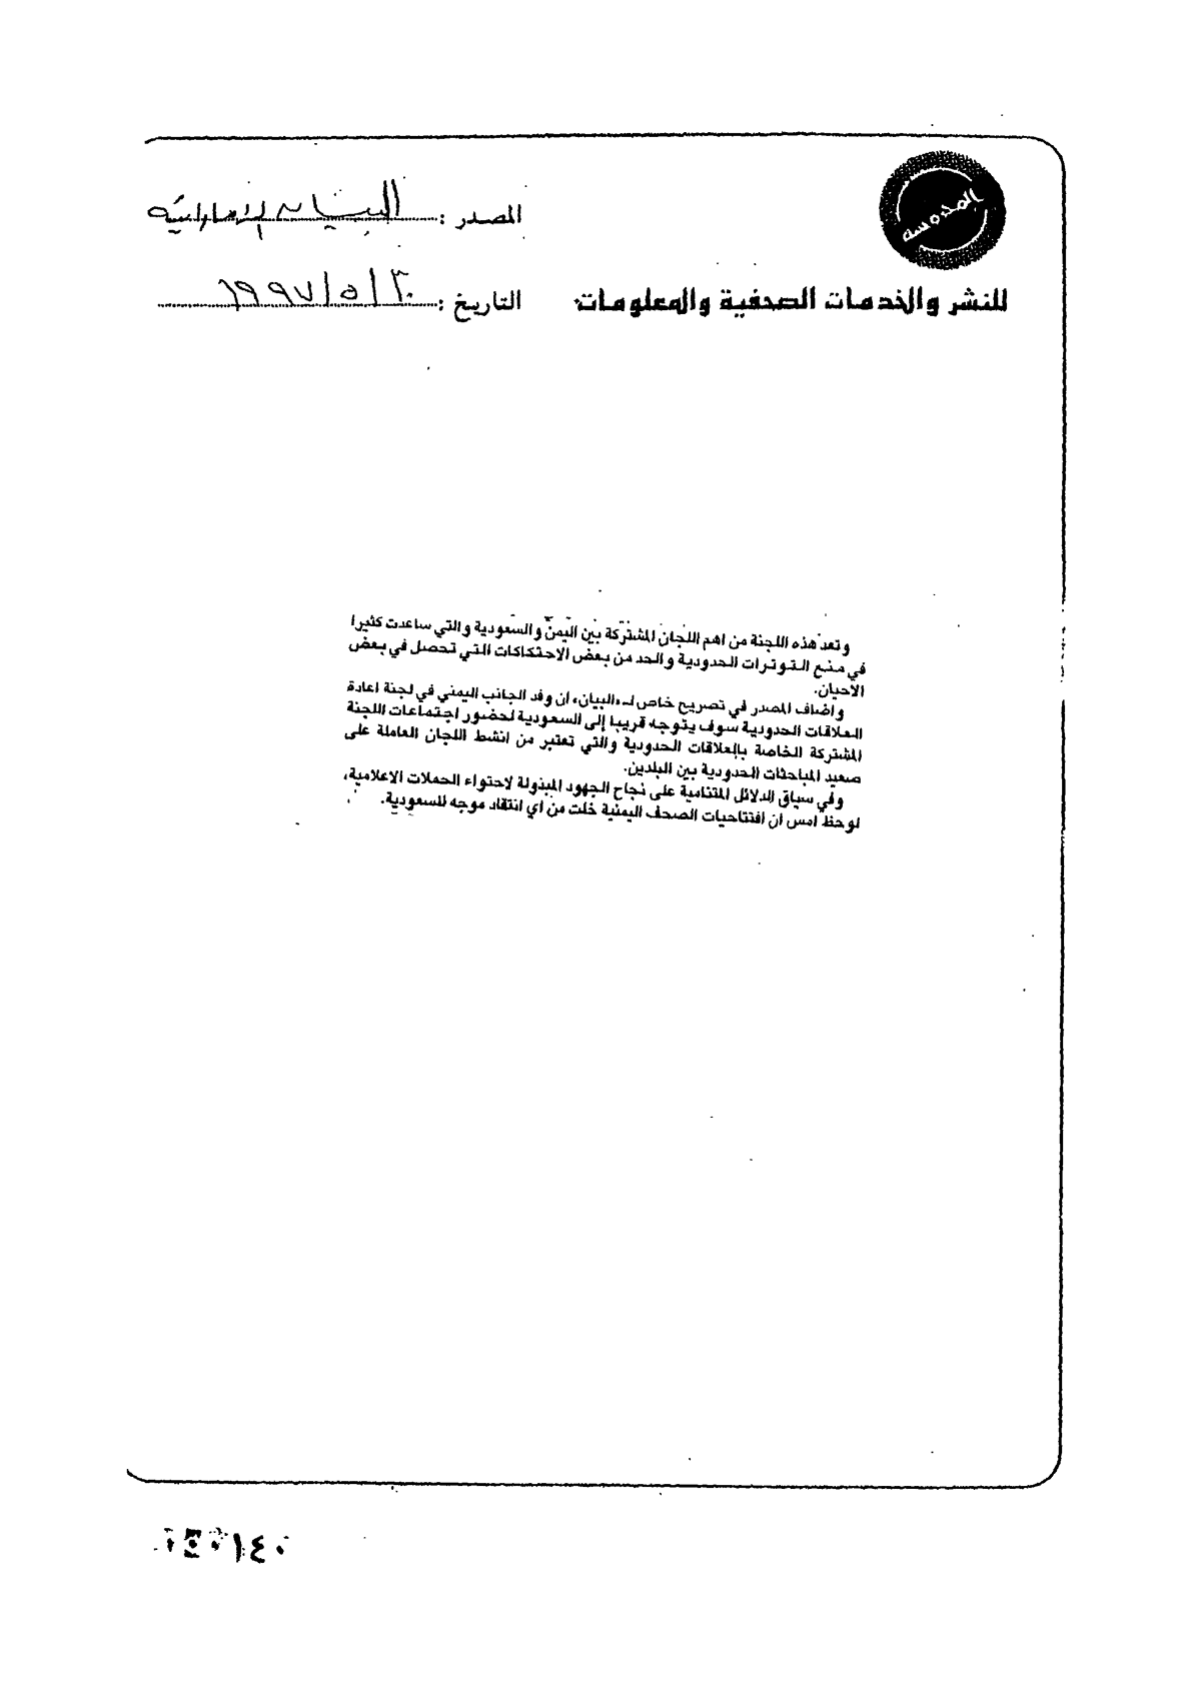 المدرسة
المصدر : البيان الإماراتية
للنشر والخدمات الصحفية والمعلومات
التاريخ : ٣٠/٥/١٩٩٧
وتعد هذه اللجنة من اهم اللجان المشتركة بين اليمن والسعودية والتي ساعدت كثيرا
في منع التوترات الحدودية والحد من بعض الاحتكاكات التي تحصل في بعض
الاحيان.
واضاف المصدر في تصريح خاص لـ«البيان» ان وفد الجانب اليمني في لجنة اعادة
العلاقات الحدودية سوف يتوجه قريبا إلى السعودية لحضور اجتماعات اللجنة
المشتركة الخاصة بالعلاقات الحدودية والتي تعتبر من انشط اللجان العاملة على
صعيد المباحثات الحدودية بين البلدين.
وفي سياق الدلائل المتنامية على نجاح الجهود المبذولة لاحتواء الحملات الاعلامية،
لوحظ امس ان افتتاحيات الصحف اليمنية خلت من أي انتقاد موجه للسعودية.